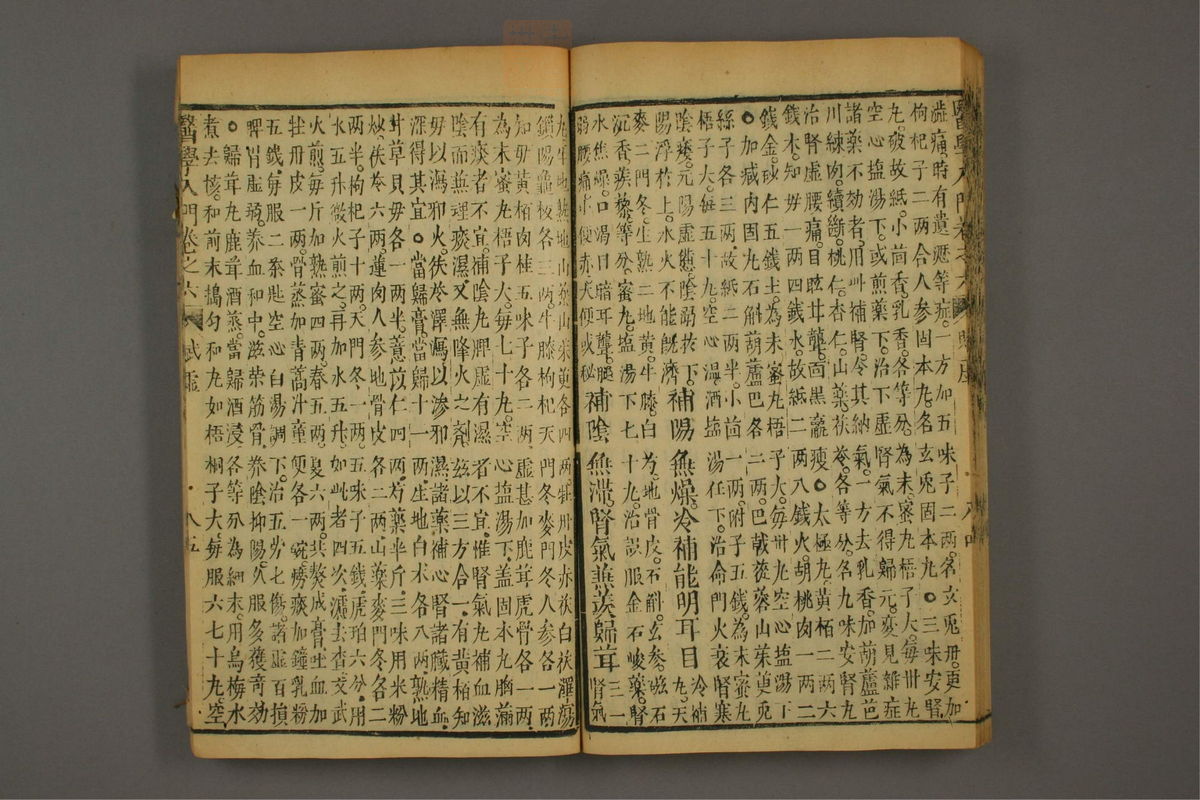 醫學入門卷之六 八四
澁痛時有遺瀝等症。一方加五味子二兩。名玄兎丹。更加
枸杞子二兩合人參固本丸。名玄兎固本丸。○三味安腎
丸。破故紙。小茴香。乳香。各等分為末。蜜丸梧子大。每卅丸
空心塩湯下。或煎藥下。治下虛腎氣不得歸元。變見雜症
諸藥不効者。用此補腎。令其納氣。一方去乳香。加葫蘆芭
川練肉。續斷。桃仁。杏仁。山藥。茯苓。各等分。名九味安腎丸
治腎虛腰痛。目眩耳聾。面黑羸瘦○太極丸。黃栢二兩六
錢木。知毋一兩四錢水。故紙二兩八錢火。胡桃肉一兩二
錢金。砂仁五錢土。為末蜜丸梧子大。每卅丸。空心塩湯下
○加減內固丸石斛葫蘆巴各二兩。巴戟蓯蓉山茱萸兎
絲子各三兩。故紙二兩半。小茴一兩。附子五錢。為末蜜丸
梧子大。每五十丸。空心溫酒塩湯任下。治命門火衰腎寒
陰痿。元陽虛憊。陰溺於下。
陽浮於上。水火不能既濟。
補陽無燥冷補能明耳目
冷補
丸。天
麥二門冬。生熟二地黃。牛膝。白芍。地骨皮。石斛。玄參。磁石
沉香。蒺藜。等分。蜜丸。塩湯下七十丸。治誤服金石峻藥。腎
水焦燥。口渴目暗耳聾。腿
弱腰痛。小便赤大便或秘
補陰無滯腎氣兼美歸茸
三一
腎氣
丸熟地山藥山茱萸各四兩。牡丹皮赤茯白茯澤瀉
鎖陽龜板各三兩。牛膝枸杞天門冬麥門冬人參各一兩
知毋黃栢肉桂五味子各二兩。虛甚加鹿茸虎骨各一兩。
為末蜜丸梧子大。每七十丸。空心塩湯下。盖固本丸胸滿
有痰者不宜。補陰丸脾虛有濕者不宜。惟腎氣丸補血滋
陰而兼理痰濕。又無降火之劑。玆以三方合一。有黃栢知
毋以瀉邪火。茯苓澤瀉以滲邪濕。諸藥補心腎諸臟精血
深得其宜○當歸膏。當歸十一兩。生地白朮各八兩熟地
甘草貝毋各一兩半。薏苡仁四兩芍藥半斤。三味用米粉
炒。茯苓六兩。蓮肉人參地骨皮各二兩。山藥麥門冬各二
兩半。枸杞子十兩。天門冬一兩。五味子五錢。虎珀六分。用
水五升微火煎之。再加水五升。如此者四次。濾去查。文武
火煎。每斤加熟蜜四兩。春五兩。夏六兩。共熬成膏。吐血加
牡丹皮一兩。骨蒸加青蒿汁童便各一碗。癆痰加鐘乳粉
五錢。每服二茶匙。空心白湯調下。治五勞七傷。諸虛百損
脾胃虛弱。養血和中。滋榮筋骨。養陰抑陽。久服多獲奇効
○歸茸丸。鹿茸酒蒸。當歸酒浸各等分。為細末。用烏梅水
煮去核。和前末搗勻。和丸如梧桐子大。每服六七十丸。空
醫學入門卷之六 拭虛 八五